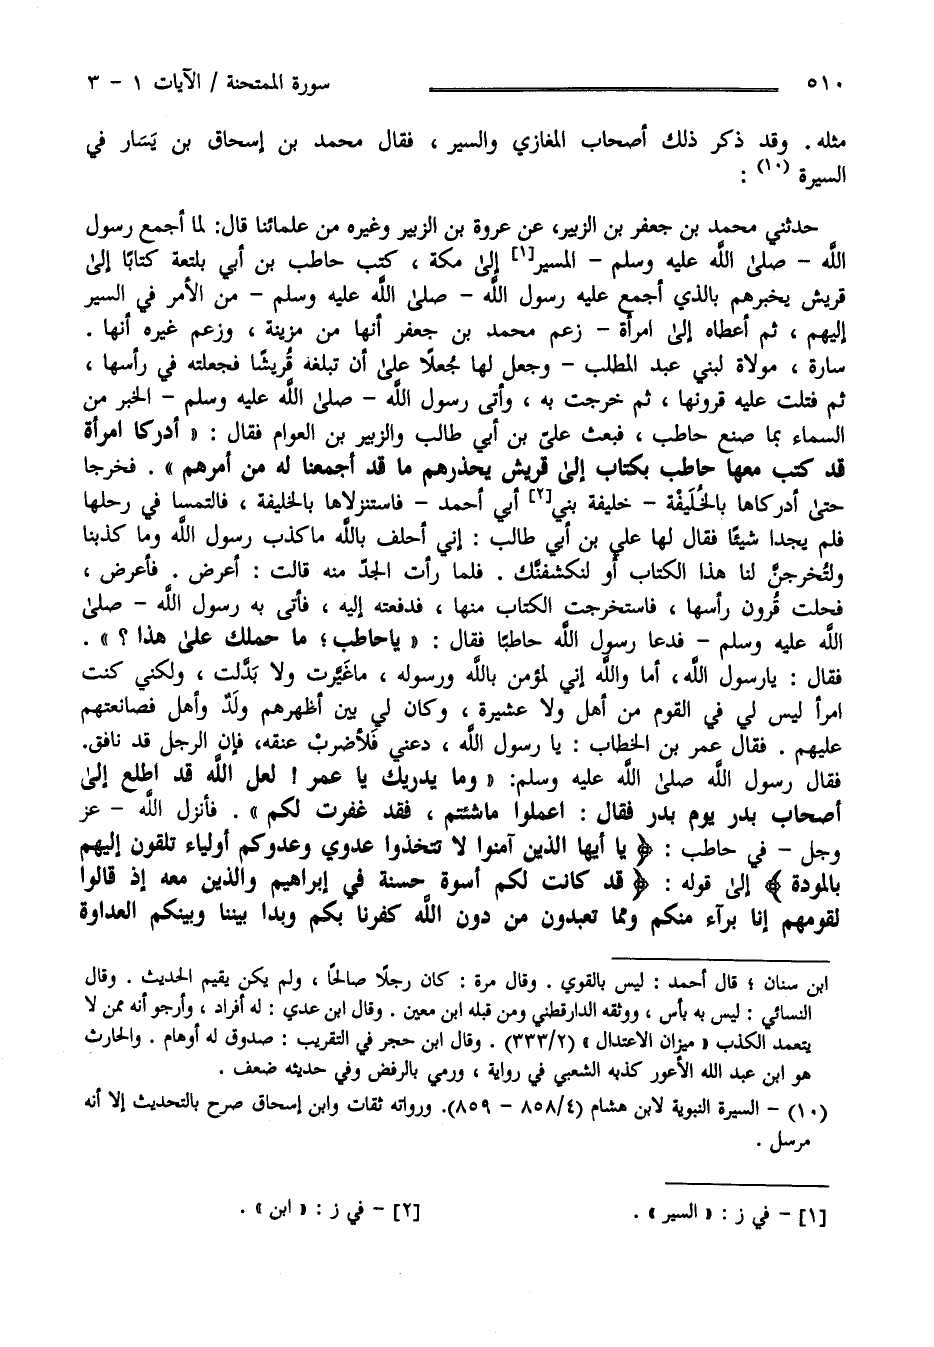 ٥١٠ سورة الممتحنة / الآيات ١ - ٣
مثله . وقد ذكر ذلك أصحاب المغازي والسير ، فقال محمد بن إسحاق بن يَسَار في
السيرة (١٠) :
حدثني محمد بن جعفر بن الزبير، عن عروة بن الزبير وغيره من علمائنا قال: لما أجمع رسول
اللَّه - صلىٰ اللَّه عليه وسلم - المسير[١] إلىٰ مكة ، كتب حاطب بن أبي بلتعة كتابًا إلىٰ
قريش يخبرهم بالذي أجمع عليه رسول اللَّه - صلىٰ اللَّه عليه وسلم - من الأمر في السير
إليهم ، ثم أعطاه إلىٰ امرأة - زعم محمد بن جعفر أنها من مزينة ، وزعم غيره أنها .
سارة ، مولاة لبني عبد المطلب - وجعل لها جُعلًا علىٰ أن تبلغه قُريشًا فجعلته في رأسها ،
ثم فتلت عليه قرونها ، ثم خرجت به ، وأتى رسول اللَّه - صلىٰ اللَّه عليه وسلم - الخبر من
السماء بما صنع حاطب ، فبعث عليّ بن أبي طالب والزبير بن العوام فقال : « أدركا امرأة
قد كتب معها حاطب بكتاب إلىٰ قريش يحذرهم ما قد أجمعنا له من أمرهم » . فخرجا
حتىٰ أدركاها بالخُلَيفْة - خليفة بني[٢] أبي أحمد - فاستنزلاها بالخليفة ، فالتمسا في رحلها
فلم يجدا شيئًا فقال لها علي بن أبي طالب : إني أحلف باللَّه ماكذب رسول اللَّه وما كذبنا
ولتُخرجنَّ لنا هذا الكتاب أو لنكشفنَّك . فلما رأت الجدّ منه قالت : أعرض . فأعرض ،
فحلت قُرون رأسها ، فاستخرجت الكتاب منها ، فدفعته إليه ، فأتى به رسول اللَّه - صلىٰ
اللَّه عليه وسلم - فدعا رسول اللَّه حاطبًا فقال : « ياحاطب؛ ما حملك علىٰ هذا ؟ » .
فقال : يارسول اللَّه، أما واللَّه إني لمؤمن باللَّه ورسوله ، ماغَيَّرت ولا بَدَّلت ، ولكني كنت
امرأ ليس لي في القوم من أهل ولا عشيرة ، وكان لي بين أظهرهم ولَدٌ وأهل فصانعتهم
عليهم . فقال عمر بن الخطاب : يا رسول اللَّه ، دعني فَلأضربْ عنقه، فإن الرجل قد نافق.
فقال رسول اللَّه صلىٰ اللَّه عليه وسلم: « وما يدريك يا عمر ! لعل اللَّه قد اطلع إلىٰ
أصحاب بدر يوم بدر فقال : اعملوا ماشئتم ، فقد غفرت لكم » . فأنزل اللَّه - عز
وجل - في حاطب : ﴿ يا أيها الذين آمنوا لا تتخذوا عدوي وعدوكم أولياء تلقون إليهم
بالمودة ﴾ إلىٰ قوله : ﴿ قد كانت لكم أسوة حسنة في إبراهيم والذين معه إذ قالوا
لقومهم إنا برآء منكم ومما تعبدون من دون اللَّه كفرنا بكم وبدا بيننا وبينكم العداوة
ابن سنان ؛ قال أحمد : ليس بالقوي . وقال مرة : كان رجلًا صالحًا ، ولم يكن يقيم الحديث . وقال
النسائي : ليس به بأس ، ووثقه الدارقطني ومن قبله ابن معين . وقال ابن عدي : له أفراد ، وأرجو أنه ممن لا
يتعمد الكذب « ميزان الاعتدال » (٣٣٣/٢) . وقال ابن حجر في التقريب : صدوق له أوهام . والحارث
هو ابن عبد الله الأعور كذبه الشعبي في رواية ، ورمي بالرفض وفي حديثه ضعف .
(١٠) - السيرة النبوية لابن هشام (٨٥٨/٤ - ٨٥٩). ورواته ثقات وابن إسحاق صرح بالتحديث إلا أنه
مرسل .
[١] - في ز : « السير » . [٢] - في ز : « ابن » .